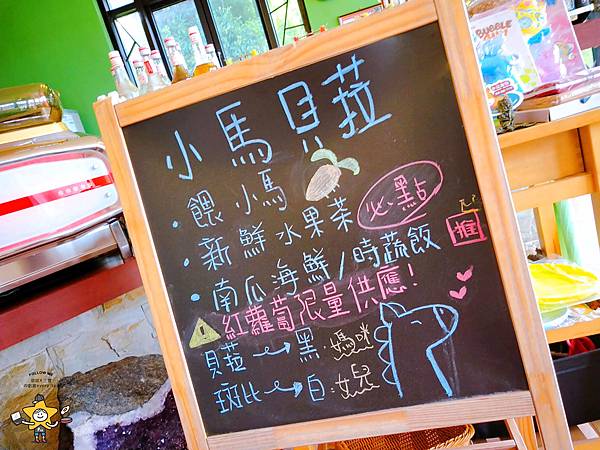 小馬貝菈
・餵小馬
・新鮮水果茶 必點
・南瓜海鮮/時蔬飯 推
紅蘿蔔限量供應!
貝菈→黑:媽咪
班比→白:女兒
BUBBLE
FOLLOW ME